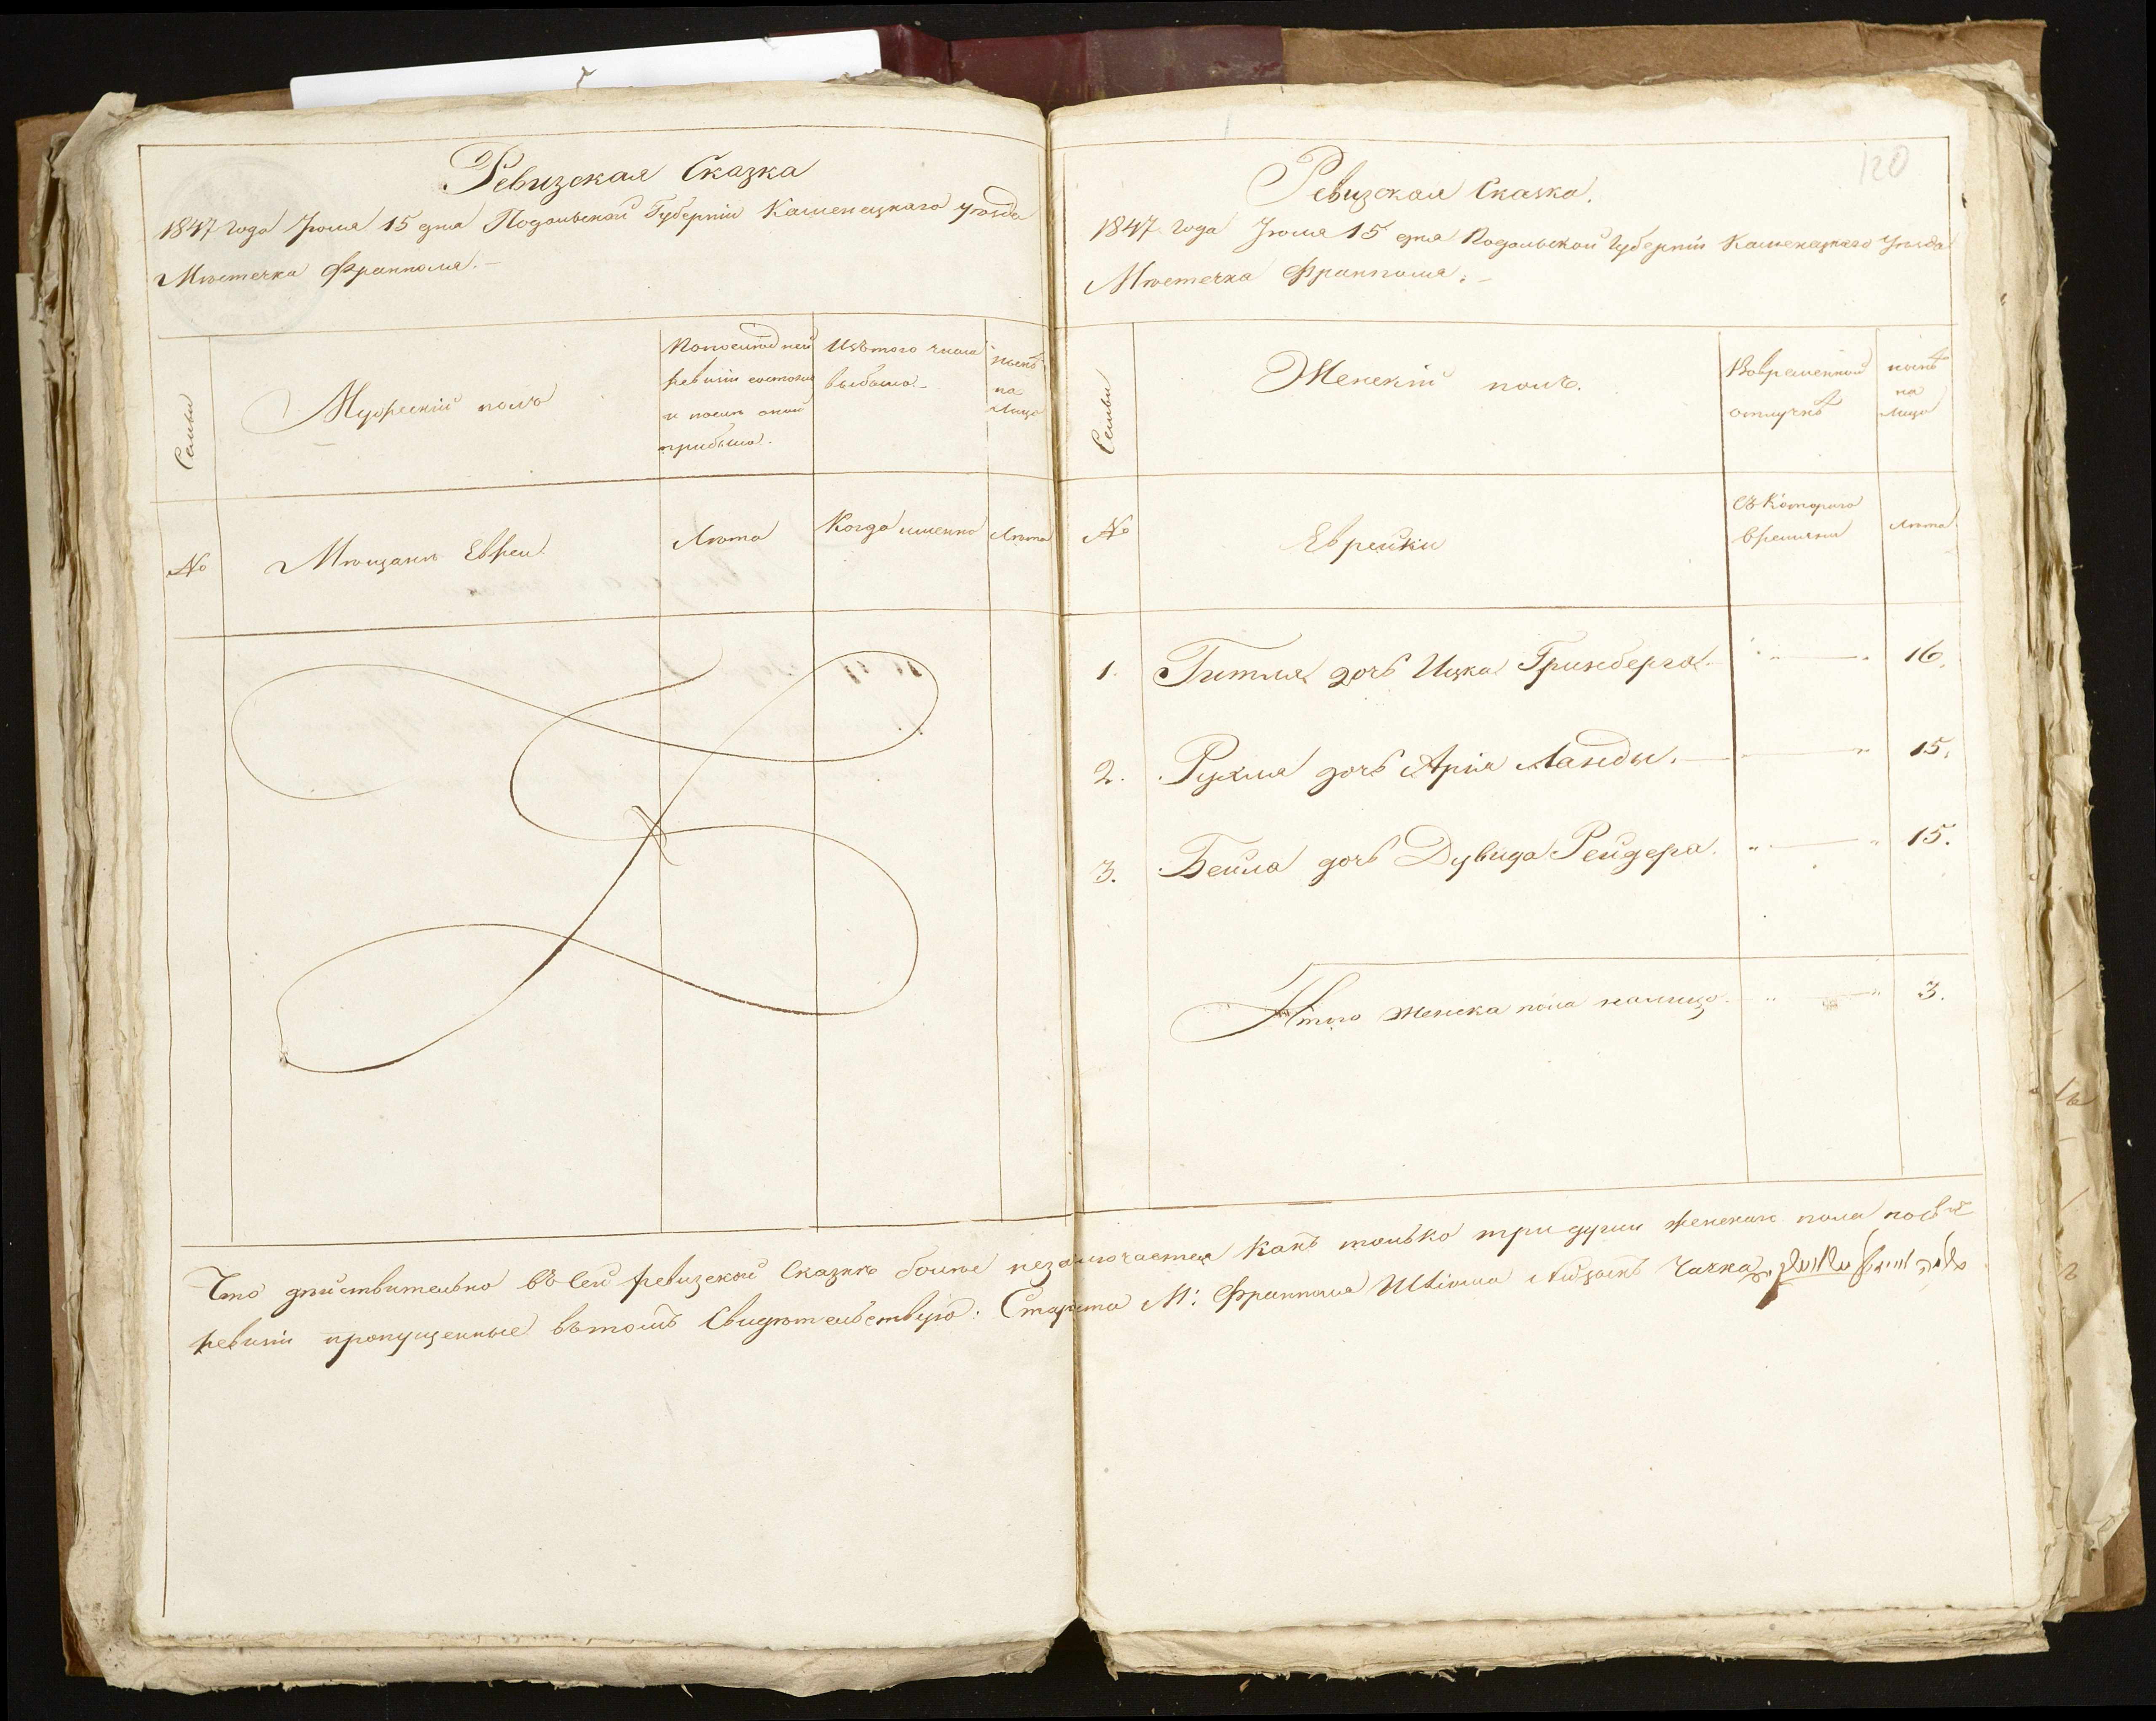 Ревизская Сказка
1847 года Июля 15 дня Подольской Губерніи Каменецкаго уѣзда
Мѣстечка Франполя.
Семьи
Мужескій полъ
Попослѣдней
ревизіи состояло
и послѣ оной
прибыло.
Изътого числа
выбыло
нынѣ
на
лицо
№
Мѣщанъ Евреи
Лѣта
Когда именно
Лѣта
120
Ревизская Сказка.
1847 года Июля 15 дня Подольской Губерніи Каменецкаго уѣзда
Мѣстечка Франполя.
Семьи
Женскій полъ.
Вовременной
отлучкѣ
нынѣ
на
лицо
№
Еврейки
Съ котораго
времяни
Лѣта
1. Гитля дочь Ицка Гринберга 16.
2. Рухля дочь Арія Ланды. 15.
3. Бейла дочь Дувида Рейдера. 15.
Итого женска пола налицо 3.
Что дѣйствительно въ сей ревизской Сказкѣ болѣе незаключается какъ только три души женскаго пола по
ревизіи пропущенные вътомъ Свидѣтельствую: Староста М: Франполя Чачка